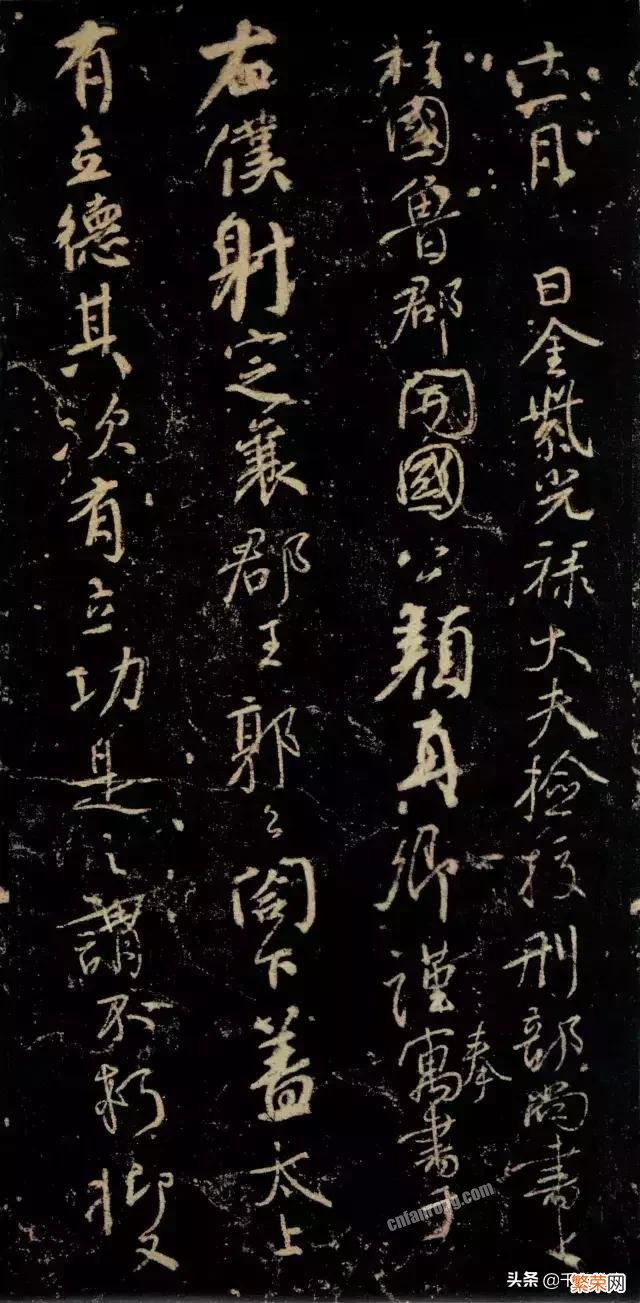 十一月 日金紫光祿大夫檢校刑部尚書上
柱國魯郡開國公顏真卿謹奉寓書于
右僕射定襄郡王郭公閤下蓋太上
有立德其次有立功是之謂不朽抑又
cnfanrong.com
头条 @千
繁荣网